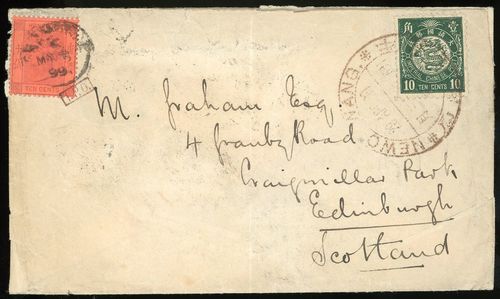 TEN CENTS
99
I.P.O.
NEWCHWANG
CHINESE
10 TEN CENTS 10
M. Graham Esq.
4 Granby Road
Craigmillar Park
Edinburgh
Scotland